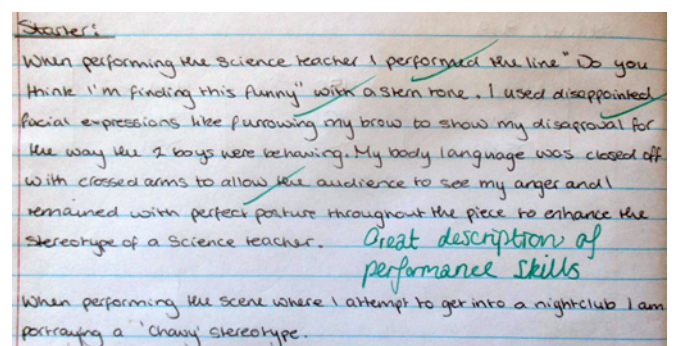 Starter:
When performing the science teacher I performed the line "Do you
think I'm finding this funny" with a stern tone. I used disappointed
facial expressions like furrowing my brow to show my disaproval for
the way the 2 boys were behaving. My body language was closed off
with crossed arms to allow the audience to see my anger and I
remained with perfect posture throughout the piece to enhance the
stereotype of a science teacher.
Great description of
performance skills
When performing the scene where I attempt to get into a nightclub I am
portraying a 'Chavy' stereotype.